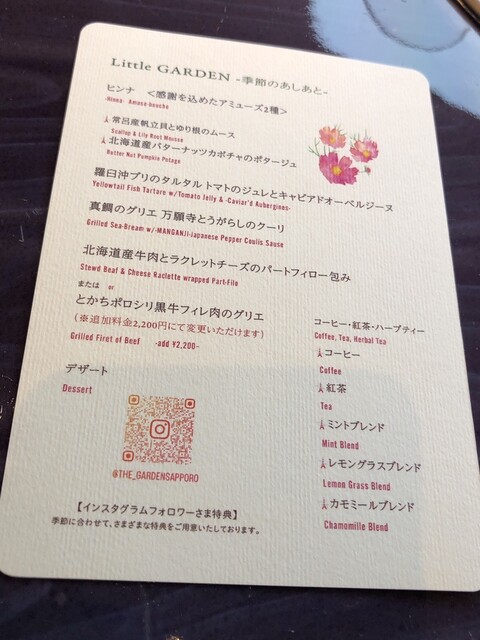 Little GARDEN -季節のあしあと-
ピンナ <感謝を込めたアミューズ2種>
-Hinna- Amuse-bouche
常呂産帆立貝とゆり根のムース
Scallop & Lily Root Mousse
北海道産バターナッツカボチャのポタージュ
Butter Nut Pumpkin Potage
羅臼沖ブリのタルタル トマトのジュレとキャビアドオーベルジーヌ
Yellowtail Fish Tartare w/Tomato Jelly & -Caviar'd Aubergines-
真鯛のグリエ 万願寺とうがらしのクーリ
Grilled Sea-Bream w/-MANGANJI-Japanese Pepper Coulis Sause
北海道産牛肉とラクレットチーズのパートフィロー包み
Stewd Beaf & Cheese Raclette wrapped Part-Filo
または or
とかちポロシリ黒牛フィレ肉のグリエ
(※追加料金2,200円にて変更いただけます)
Grilled Firet of Beef -add ¥2,200-
デザート
Dessert
@THE_GARDENSAPPORO
【インスタグラムフォロワーさま特典】
季節に合わせて、さまざまな特典をご用意いたしております。
コーヒー・紅茶・ハーブティー
Coffee, Tea, Herbal Tea
コーヒー
Coffee
紅茶
Tea
ミントブレンド
Mint Blend
レモングラスブレンド
Lemon Grass Blend
カモミールブレンド
Chamomille Blend